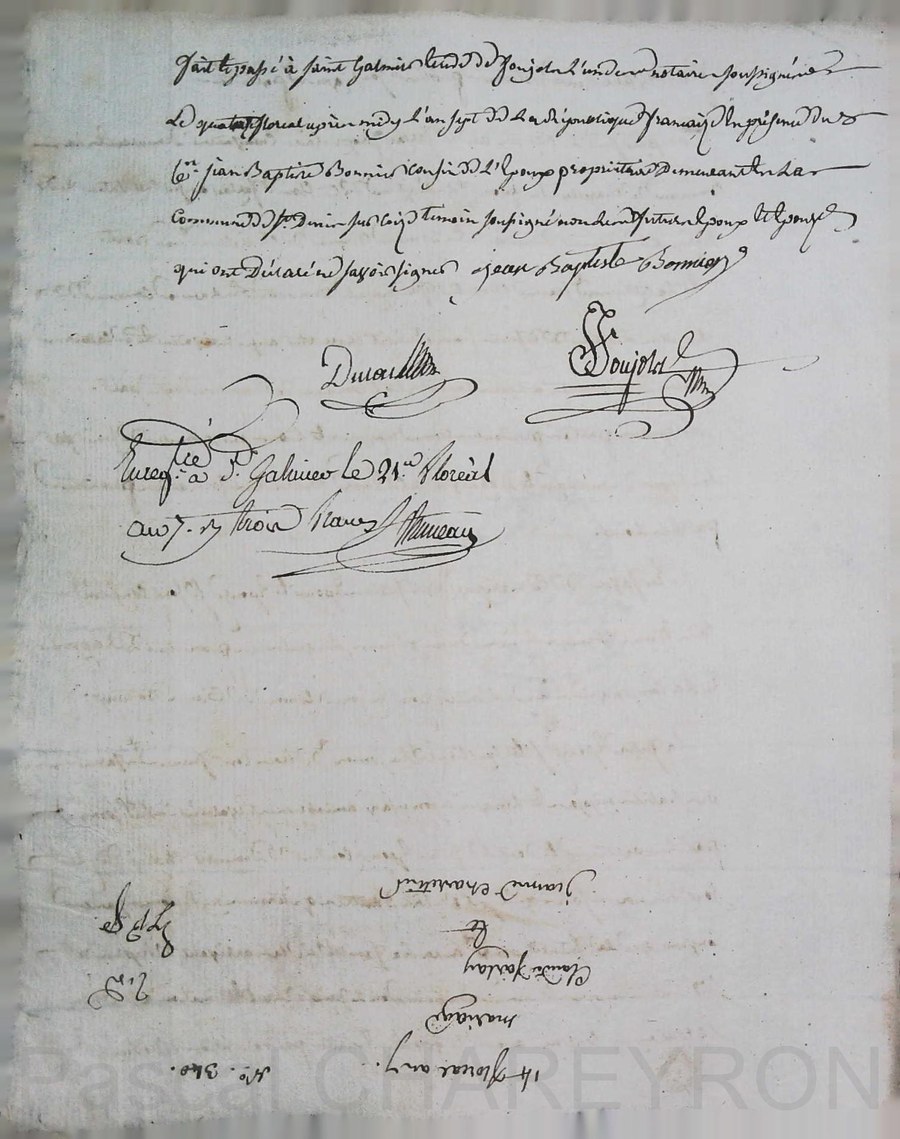 fait et passé à Saint Galmier Etude de Joujole l'un de nous notaires soussignés
Le quatorze floreal après midy l'an sept de La république francaize En présence du
Cen. jean Baptiste Bonnier cousin de L'Epoux propriétaire Demeurant En La
commune de St. Denis sur Coize temoin soussigné non les futurs Epoux et Epouze
qui ont Déclaré ne savoir signer jean Baptiste Bonnier
Joujole
Enregtré à St. Galmier le 21 floréal
an 7. R trois francs
14 floreal an 7. No. 340.
mariage
Claude
et
jeanne
Pascal CHAREYRON